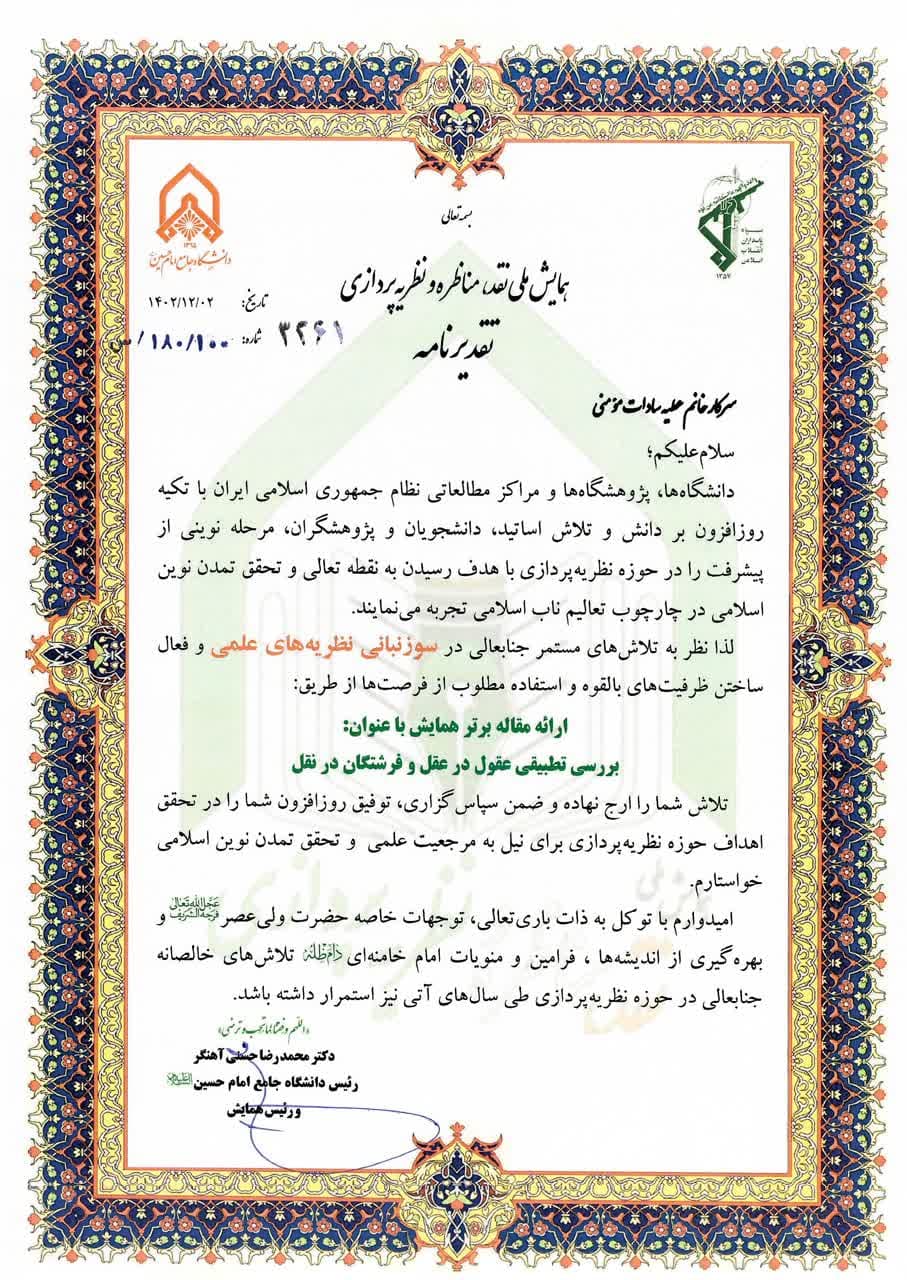 بسمه تعالی
سپاه
پاسداران
انقلاب
اسلامی
۱۳۵۷
۱۳۶۵
دانشگاه جامع امام حسین
همایش ملی نقد، مناظره و نظریه پردازی
تاریخ: ۱۴۰۲/۱۲/۰۲
تقدیرنامه
شماره: ۱۸۰/۱۰۰/س
سرکار خانم علیه سادات مؤمنی
سلام‌علیکم؛
دانشگاه‌ها، پژوهشگاه‌ها و مراکز مطالعاتی نظام جمهوری اسلامی ایران با تکیه
روزافزون بر دانش و تلاش اساتید، دانشجویان و پژوهشگران، مرحله نوینی از
پیشرفت را در حوزه نظریه‌پردازی با هدف رسیدن به نقطه تعالی و تحقق تمدن نوین
اسلامی در چارچوب تعالیم ناب اسلامی تجربه می‌نمایند.
لذا نظر به تلاش‌های مستمر جنابعالی در سوزنبانی نظریه‌های علمی و فعال
ساختن ظرفیت‌های بالقوه و استفاده مطلوب از فرصت‌ها از طریق:
ارائه مقاله برتر همایش با عنوان:
بررسی تطبیقی عقول در عقل و فرشتگان در نقل
تلاش شما را ارج نهاده و ضمن سپاس‌گزاری، توفیق روزافزون شما را در تحقق
اهداف حوزه نظریه‌پردازی برای نیل به مرجعیت علمی و تحقق تمدن نوین اسلامی
خواستارم.
امیدوارم با توکل به ذات باری‌تعالی، توجهات خاصه حضرت ولی‌عصر عجل‌الله‌تعالی فرجه‌الشریف و
بهره‌گیری از اندیشه‌ها ، فرامین و منویات امام خامنه‌ای دام‌ظله تلاش‌های خالصانه
جنابعالی در حوزه نظریه‌پردازی طی سال‌های آتی نیز استمرار داشته باشد.
«اللهم وفقنا لما تحب و ترضی»
دکتر محمدرضا حسنی آهنگر
رئیس دانشگاه جامع امام حسین علیه‌السلام
و رئیس همایش